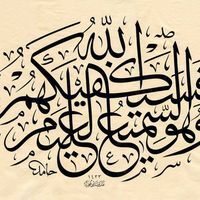 فسيكفيكهم الله
وهو السميع العليم
١٤٢٣